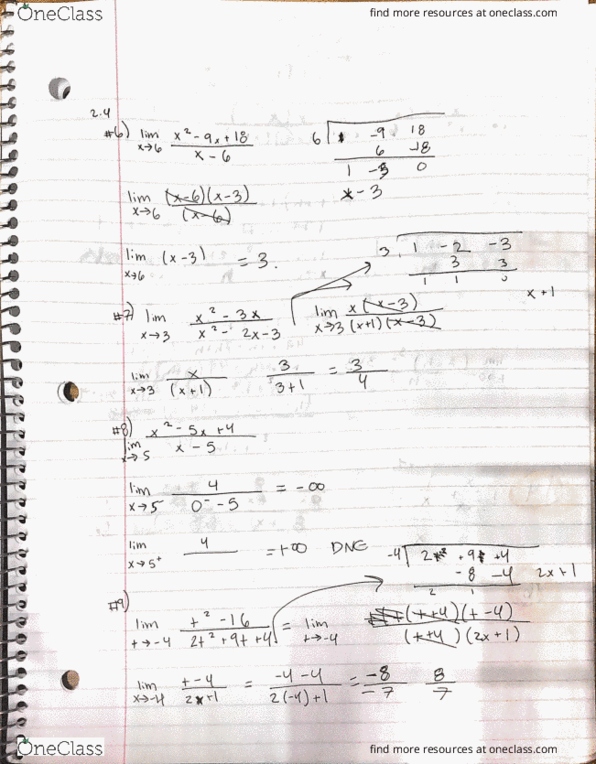 OneClass
find more resources at oneclass.com
2.4
#6) lim x→6 x² - 9x + 18 / x - 6
6 | 1 -9 18
6 -18
1 -3 0
x - 3
lim x→6 (x-6)(x-3) / (x-6)
lim x→6 (x-3) = 3.
3 | 1 -2 -3
3 3
1 1 0
x + 1
#7) lim x→3 x² - 3x / x² - 2x - 3
lim x→3 x(x-3) / (x+1)(x-3)
lim x→3 x / (x+1) 3 / 3+1 = 3 / 4
#8) lim x→5 x² - 5x + 4 / x - 5
lim x→5⁻ 4 / 0⁻ - 5 = -∞
lim x→5⁺ 4 / = +∞ DNE
-4 | 2 +9 +4
-8 -4
2 1
2x + 1
#9) lim t→-4 t² - 16 / 2t² + 9t + 4 = lim t→-4 (t+4)(t-4) / (t+4)(2x+1)
lim x→-4 t-4 / 2x+1 = -4-4 / 2(-4)+1 = -8 / -7 8 / 7
OneClass
find more resources at oneclass.com